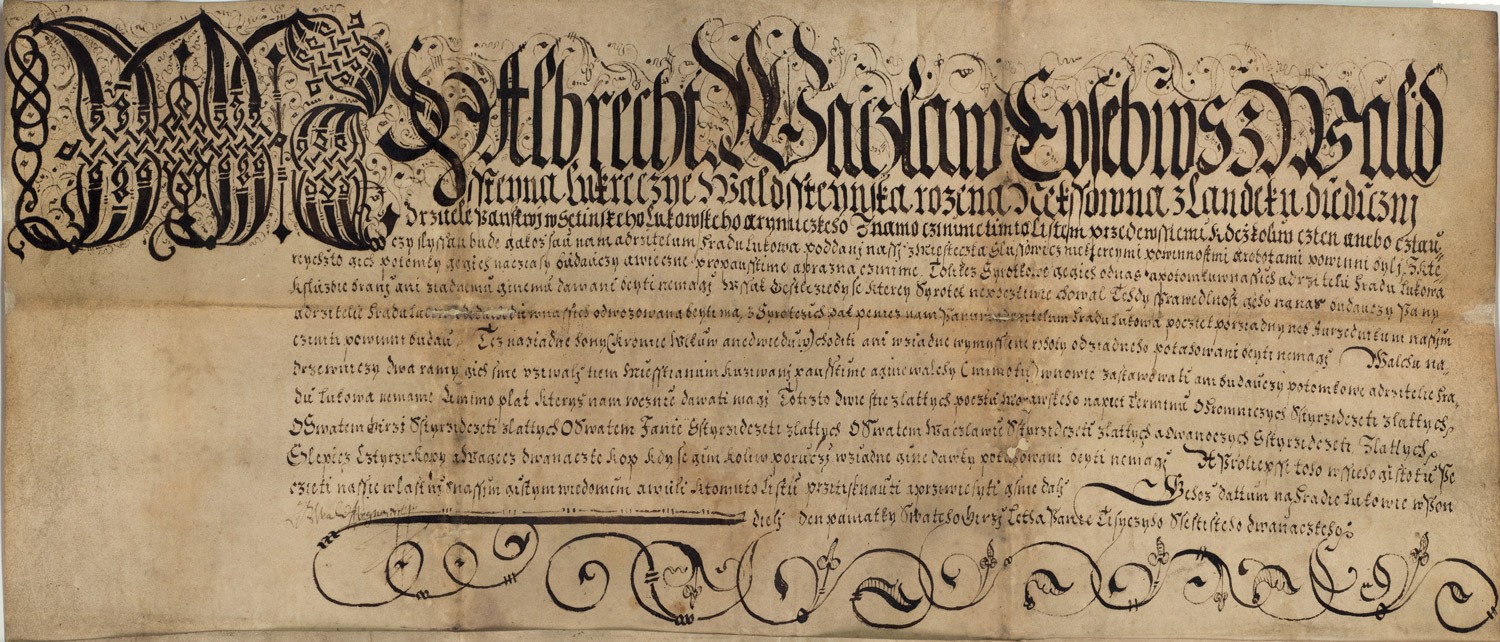 My Albrecht Waczlaw Eusebius z Wald
Sstegna Lukreczye Waldsstegnska rozena Nekssowna z Landeku diediczny
Drzitele Panstwj wsetinskeho Lukowskeho a rymniczkeho Znamo czinime timto Listem przedewssiemi kdezkoliw czten anebo cztau-
czy slyssan bude gakoz sau nam a drzitelum hradu Lukowa poddanj nassj z Miesteczka Slussowicz niekterymi powinnostmi a robotami powinni bylj Z kte-
rychzto gich potomky gegich na czasy buduczy a wieczne propaustime a prazna czinime Tolikez Syrotkowe gegich od nas a potomkuw nassich a drzitelu hradu Lukowa
k sluzbie branj ani ziadnemu ginemu dawani beyti nemagi wssak gestlizieby se kterey Syrotek nepoczliwie chowal Tehdy sprawedlnost geho na nas buduczy Pany
a drzitele hradu odwozowana beyti ma, z Syrotczich pak peniez nam Panum drzitelum hradu Lukowa poczet porziadny neb Aurzednikum nassym
cziniti powinni budau Tez na ziadne hony (kromie Wlkuw a nedwieduw) choditi ani w ziadne wymyssleni roboty od ziadneho potahowani beyti nemagj Walchu na-
drzewniczy dwa ramy gich sme vziwalj tiem Miesstianum k uziwanj paustime a gine walchy (mimo tu) w nowie zastawowati ani buduczy potomkowe a drzitele hra-
du Lukowa nemame Mimo plat kterys nam rocznie dawati magi Totizto dwie stie zlattych pocztu Morawskeho na piet Terminu O Hromniczych Sstyrzidczeti zlattych
O Swatem Girzi Sstyrzidczeti zlattych O Swatem Janie Sstyrzidczeti zlattych O Swatem Waczlawie Sstyrzidczeti zlattych a dwanoczych Sstyrzidczeti Zlattych
Slepicz Cztyrzi kopy a Wagecz dwanaczte kop kdy se gim koliw poruczj w ziadne gine dawky potahowani beyti nemagi A pro lepssi toho wsseho gistotu Pe-
czieti nassie wlastnj s nassim gistym wiedomim a wuli k tomuto Listu przitisknauti a przewiesyti gsme dalj Genz dattum na hradie Lukowie w Pon
dielj den pamatky Swateho Girzj Letha Panie Tisyczyho Ssestisteho dwanaczteho